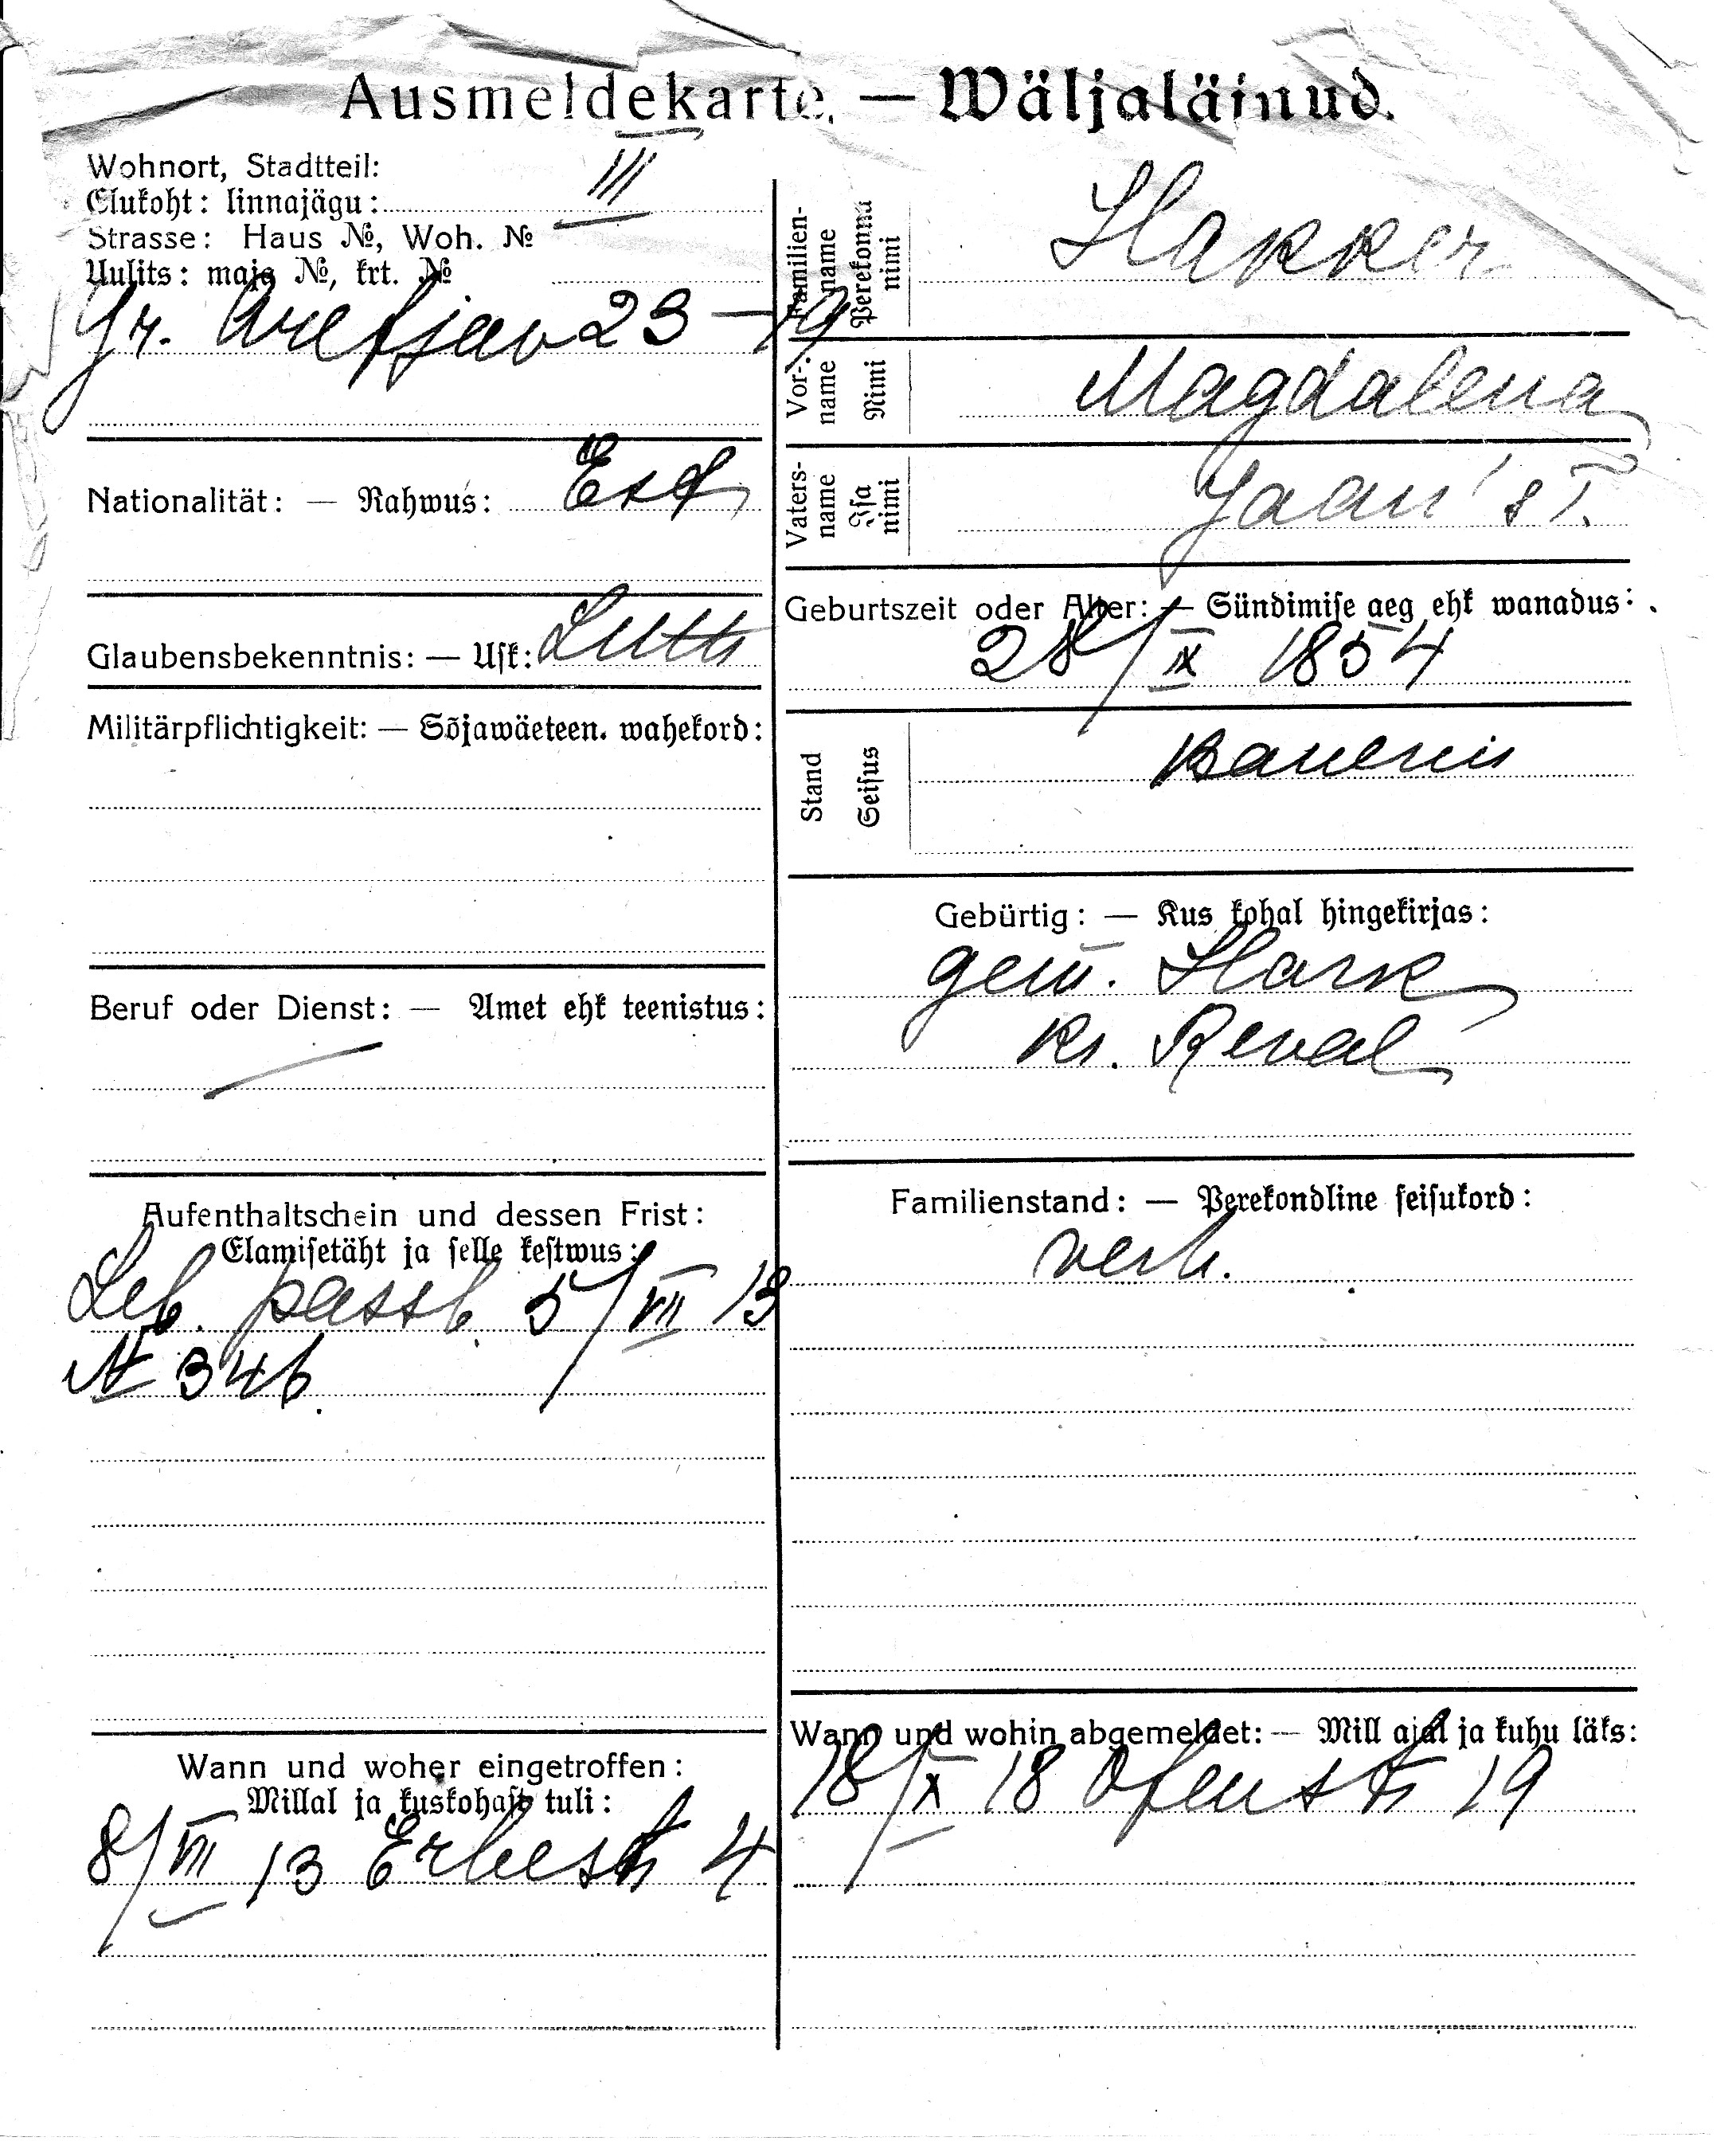 Ausmeldekarte. — Wäljaläinud.
Wohnort, Stadtteil:
Elukoht: linnajägu: III
Strasse: Haus №, Woh. №
Uulits: maja №, krt. №
Gr. 23 — 19
Nationalität: — Rahwus: Est
Glaubensbekenntnis: — Usk: Luth
Militärpflichtigkeit: — Sõjawäeteen. wahekord:
Beruf oder Dienst: — Amet ehk teenistus:
—
Aufenthaltschein und dessen Frist:
Elamisetäht ja selle kestwus:
Leb. passb. 5/VII 13
№ 346.
Wann und woher eingetroffen:
Millal ja kuskohast tuli:
8/VII 13 Erbestr 4
Familien-name Perekonna nimi Hakker
Vor-name Nimi Magdalena
Vaters-name Isa nimi Jaan's T.
Geburtszeit oder Alter: — Sündimise aeg ehk wanadus:
28/IX 1854
Stand Seisus Bauerin
Gebürtig: — Kus kohal hingekirjas:
gem. Hark
Kr. Reval
Familienstand: — Perekondline seisukord:
verh.
Wann und wohin abgemeldet: — Mill ajal ja kuhu läks:
18/X 18 Ofenstr 19